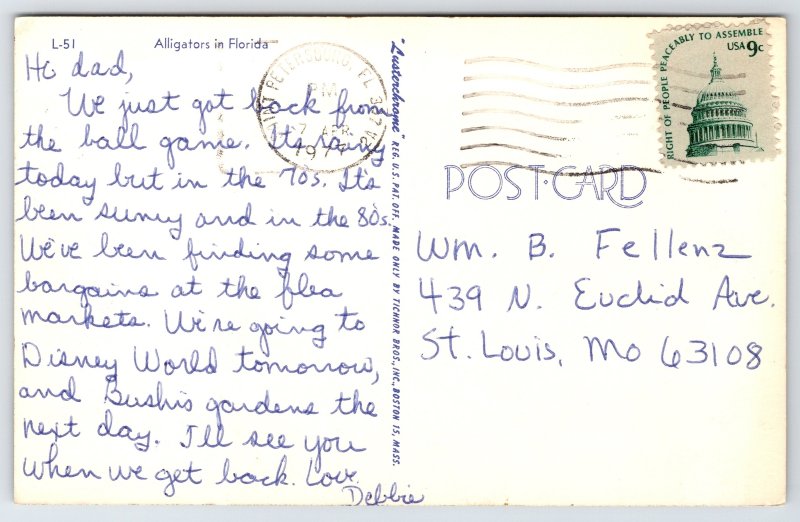 L-51 Alligators in Florida
Hi dad,
We just got back from
the ball game. It's rainy
today but in the 70s. It's
been sunny and in the 80s.
We've been finding some
bargains at the flea
markets. We're going to
Disney World tomorrow,
and Bushis gardens the
next day. I'll see you
when we get back. Love
Debbie
"Lusterchrome" REG. U.S. PAT. OFF. MADE ONLY BY TICHNOR BROS., INC., BOSTON 15, MASS.
PETERSBURG, FL
PM
7 APR
1977
RIGHT OF PEOPLE PEACEABLY TO ASSEMBLE
USA 9c
POST-CARD
Wm. B. Fellenz
439 N. Euclid Ave.
St. Louis, Mo 63108